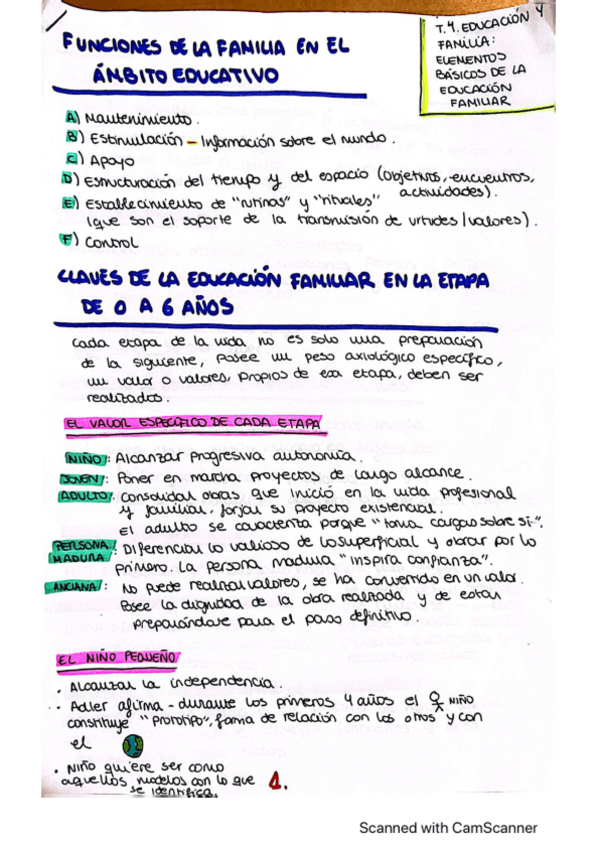 T.4. EDUCACIÓN Y
FAMILIA:
ELEMENTOS
BÁSICOS DE LA
EDUCACIÓN
FAMILIAR
FUNCIONES DE LA FAMILIA EN EL
ÁMBITO EDUCATIVO
A) Mantenimiento.
B) Estimulación - Información sobre el mundo.
C) Apoyo
D) Estructuración del tiempo y del espacio (objetivos, encuentros,
actividades).
E) Establecimiento de "rutinas" y "rituales"
(que son el soporte de la transmisión de virtudes/valores).
F) Control
CLAVES DE LA EDUCACIÓN FAMILIAR EN LA ETAPA
DE 0 A 6 AÑOS
Cada etapa de la vida no es solo una preparación
de la siguiente, posee un peso axiológico específico,
un valor o valores, propios de esa etapa, deben ser
realizados.
EL VALOR ESPECÍFICO DE CADA ETAPA
NIÑO: Alcanzar progresiva autonomía.
JOVEN: Poner en marcha proyectos de largo alcance.
ADULTO: Consolidar obras que inició en la vida profesional
y familiar, forjar su proyecto existencial.
El adulto se caracteriza porque "toma cargas sobre sí".
PERSONA MADURA: Diferencian lo valioso de lo superficial y obrar por lo
primero. La persona madura "inspira confianza".
ANCIANA: No puede realizar valores, se ha convertido en un valor.
Posee la dignidad de la obra realizada y de estar
preparándose para el paso definitivo.
EL NIÑO PEQUEÑO
· Alcanzar la independencia.
· Adler afirma - durante los primeros 4 años el NIÑO
constituye "Prototipo", forma de relación con los otros y con
el
· NIÑO quiere ser como
aquellos modelos con lo que
se identifica.
1.
Scanned with CamScanner